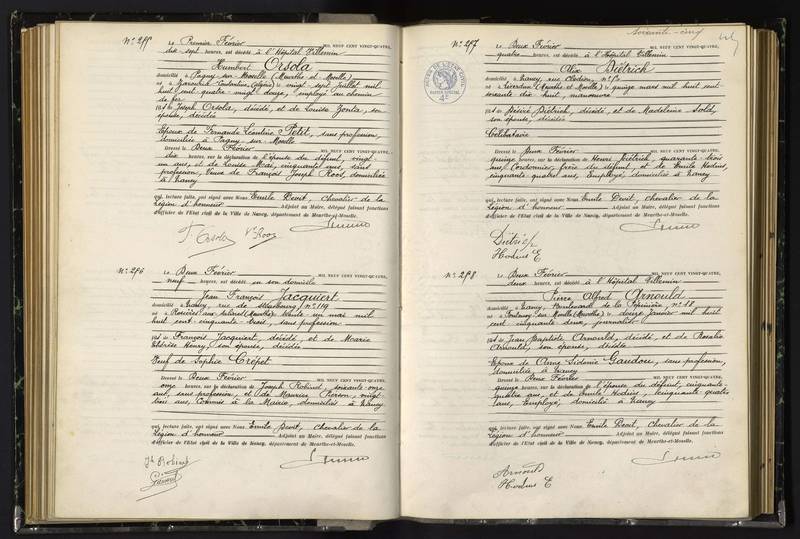 Nº 255
Le Premier Février MIL NEUF CENT VINGT-QUATRE,
dix sept heures, est décédé à l'Hôpital Villemin
Humbert Orsola
domicilié à Pagny-sur-Moselle (Meurthe et Moselle)
né à Constantine (Algérie) le vingt sept juillet mil
huit cent quatre-vingt douze, employé au chemin
de fer
fils de Joseph Orsola, décédé et de Louise Zonta, son
épouse, décédée
Epoux de Fernande Léontine Petit, sans profession,
domiciliée à Pagny sur Moselle
Dressé le Deux Février MIL NEUF CENT VINGT-QUATRE,
dix heures, sur la déclaration de l'épouse du défunt, vingt
ans, et de Louise Mai, cinquante ans, sans
profession, Veuve de François Joseph Roos, domiciliée
à Nancy
qui, lecture faite, ont signé avec Nous Emile Devit, chevalier de la
Légion d'honneur Adjoint au Maire, délégué faisant fonctions
d'Officier de l'Etat civil de la Ville de Nancy, département de Meurthe-et-Moselle.
F. Orsola Vve Roos
Nº 256
Le Deux Février MIL NEUF CENT VINGT-QUATRE,
neuf heures, est décédé en son domicile
Jean François Jacquiert
domicilié à Nancy, rue de Strasbourg, nº 119
né à Rosières aux Salines (Meurthe) le trente un mai mil
huit cent cinquante trois, sans profession
fils de François Jacquiert, décédé, et de Marie
Thérèse Henry, son épouse, décédée
Veuf de Sophie Crépet
Dressé le Deux Février MIL NEUF CENT VINGT-QUATRE,
onze heures, sur la déclaration de Joseph Robinet, soixante-onze
ans, sans profession, et de Maurice Pierson, vingt
trois ans, Commis à la Mairie, domiciliés à Nancy
qui, lecture faite, ont signé avec Nous Emile Devit, chevalier de la
Légion d'honneur Adjoint au Maire, délégué faisant fonctions
d'Officier de l'Etat civil de la Ville de Nancy, département de Meurthe-et-Moselle.
Jh Robinet
soixante-cinq
Nº 257
Le Deux Février MIL NEUF CENT VINGT-QUATRE,
quatre heures, est décédé à l'Hôpital Villemin
Alix Diétrich
domicilié à Nancy, rue Clodion, nº
né à Liverdun (Meurthe et Moselle) le quinze mars mil huit cent
soixante dix huit, manœuvre
fils de Désiré Diétrich, décédé, et de Madeleine Sold,
son épouse, décédée
Célibataire
Dressé le Deux Février MIL NEUF CENT VINGT-QUATRE,
quinze heures, sur la déclaration de Henri Diétrich, quarante-trois
ans, Cordonnier, frère du défunt, et de Emile Hodius,
cinquante-quatre ans, Employé, domiciliés à Nancy
qui, lecture faite, ont signé avec Nous Emile Devit, chevalier de la
Légion d'honneur Adjoint au Maire, délégué faisant fonctions
d'Officier de l'Etat civil de la Ville de Nancy, département de Meurthe-et-Moselle.
Diétrich
Hodius E
Nº 258
Le Deux Février MIL NEUF CENT VINGT-QUATRE,
deux heures, est décédé à l'Hôpital Villemin
Pierre Alfred Arnould
domicilié à Nancy, Boulevard de la Pépinière, nº 18
né à Foulcrey (Meurthe) le douze janvier mil huit
cent cinquante deux, journalier
fils de Jean Baptiste Arnould, décédé, et de Rosalie
Arnould, son épouse, décédée
Epoux de Anne Sidonie Gaudou, sans profession,
domiciliée à Nancy
Dressé le Deux Février MIL NEUF CENT VINGT-QUATRE,
quinze heures, sur la déclaration de l'épouse du défunt, cinquante-
quatre ans, et de Emile Hodius, cinquante quatre
ans, Employé, domicilié à Nancy
qui, lecture faite, ont signé avec Nous Emile Devit, chevalier de la
Légion d'honneur Adjoint au Maire, délégué faisant fonctions
d'Officier de l'Etat civil de la Ville de Nancy, département de Meurthe-et-Moselle.
Arnould
Hodius E